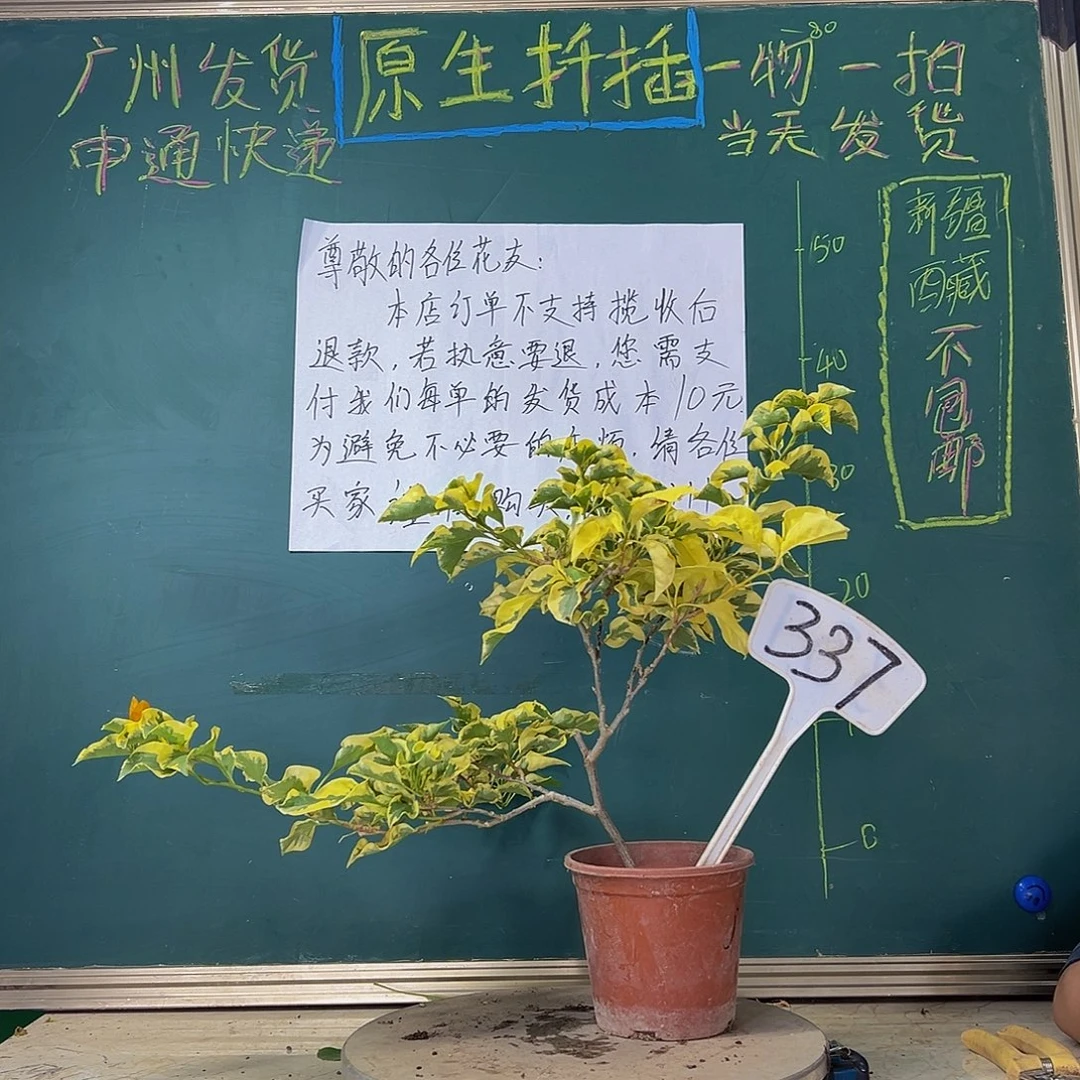 广州发货
申通快递
原生扦插
一物一拍
80
当天发货
新疆
西藏
不
包
邮
50
40
30
20
0
尊敬的各位花友:
本店订单不支持揽收后
退款,若执意要退,您需支
付我们每单的发货成本10元
为避免不必要的麻烦,请各位
买家
购买
337